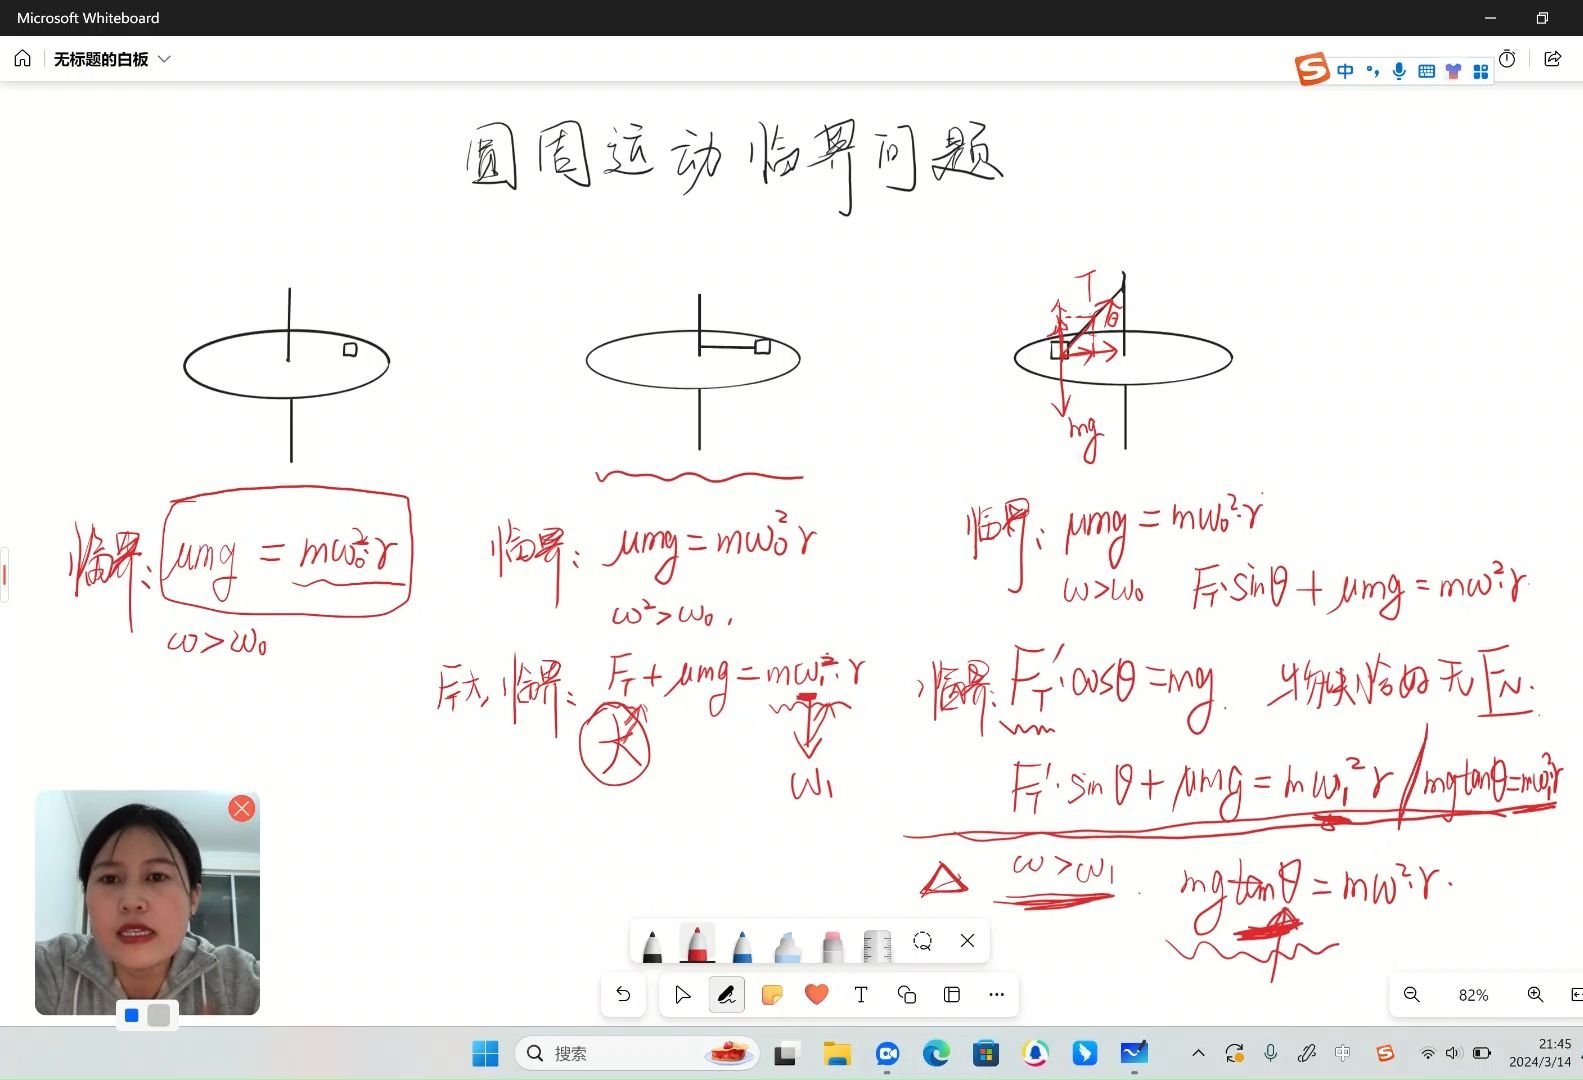 Microsoft Whiteboard
无标题的白板
中
圆周运动临界问题
T
θ
mg
临界: μmg = mω₀²·r
ω>ω₀
临界: μmg = mω₀²r
ω²>ω₀,
F_T大, 临界: F_T + μmg = mω₁²·r
大
ω₁
临界: μmg = mω₀²·r
ω>ω₀ F_T·sinθ + μmg = mω²·r
临界: F_T'·cosθ = mg. 物块恰好无F_N.
F_T'·sinθ + μmg = mω₁²r / mgtanθ = mω₁²r
△ ω>ω₁. mgtanθ = mω²·r.
T
82%
搜索
中
21:45
2024/3/14